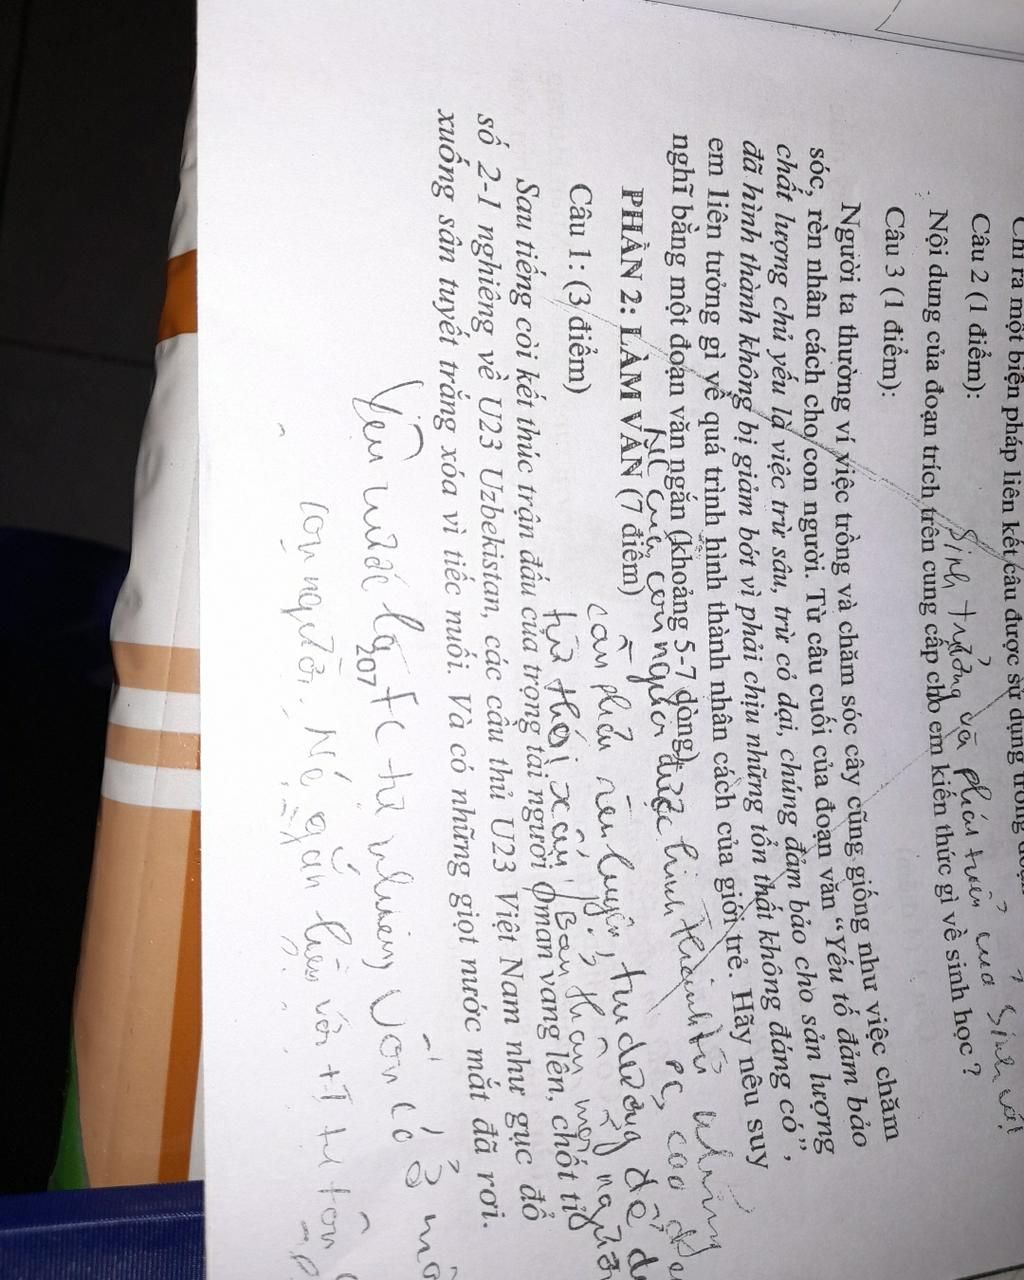 Chỉ ra một biện pháp liên kết câu được sử dụng trong đoạn
Câu 2 (1 điểm): sinh vật
Sinh trưởng và phát triển của
Nội dung của đoạn trích trên cung cấp cho em kiến thức gì về sinh học ?
Câu 3 (1 điểm):
Người ta thường ví việc trồng và chăm sóc cây cũng giống như việc chăm
sóc, rèn nhân cách cho con người. Từ câu cuối của đoạn văn “Yếu tố đảm bảo
chất lượng chủ yếu là việc trừ sâu, trừ cỏ dại, chúng đảm bảo cho sản lượng
đã hình thành không bị giảm bớt vì phải chịu những tổn thất không đáng có”,
em liên tưởng gì về quá trình hình thành nhân cách của giới trẻ. Hãy nêu suy
nghĩ bằng một đoạn văn ngắn (khoảng 5-7 dòng).
NC của con người được hình thành từ những
PHẦN 2: LÀM VĂN (7 điểm)
cần phải rèn luyện, tu dưỡng để
Câu 1: (3 điểm)
từ thói xấu, Bản thân mỗi người
Sau tiếng còi kết thúc trận đấu của trọng tài người Oman vang lên, chốt tỉ
số 2-1 nghiêng về U23 Uzbekistan, các cầu thủ U23 Việt Nam như gục đổ
xuống sân tuyết trắng xóa vì tiếc nuối. Và có những giọt nước mắt đã rơi.
Yêu nước là tc tự nhiên, vốn có ở mỗi
207
con người. Nó gắn liền với